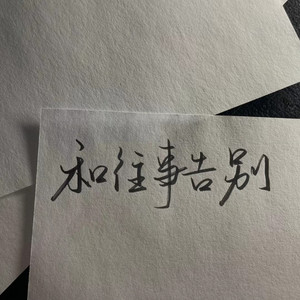 和往事告别